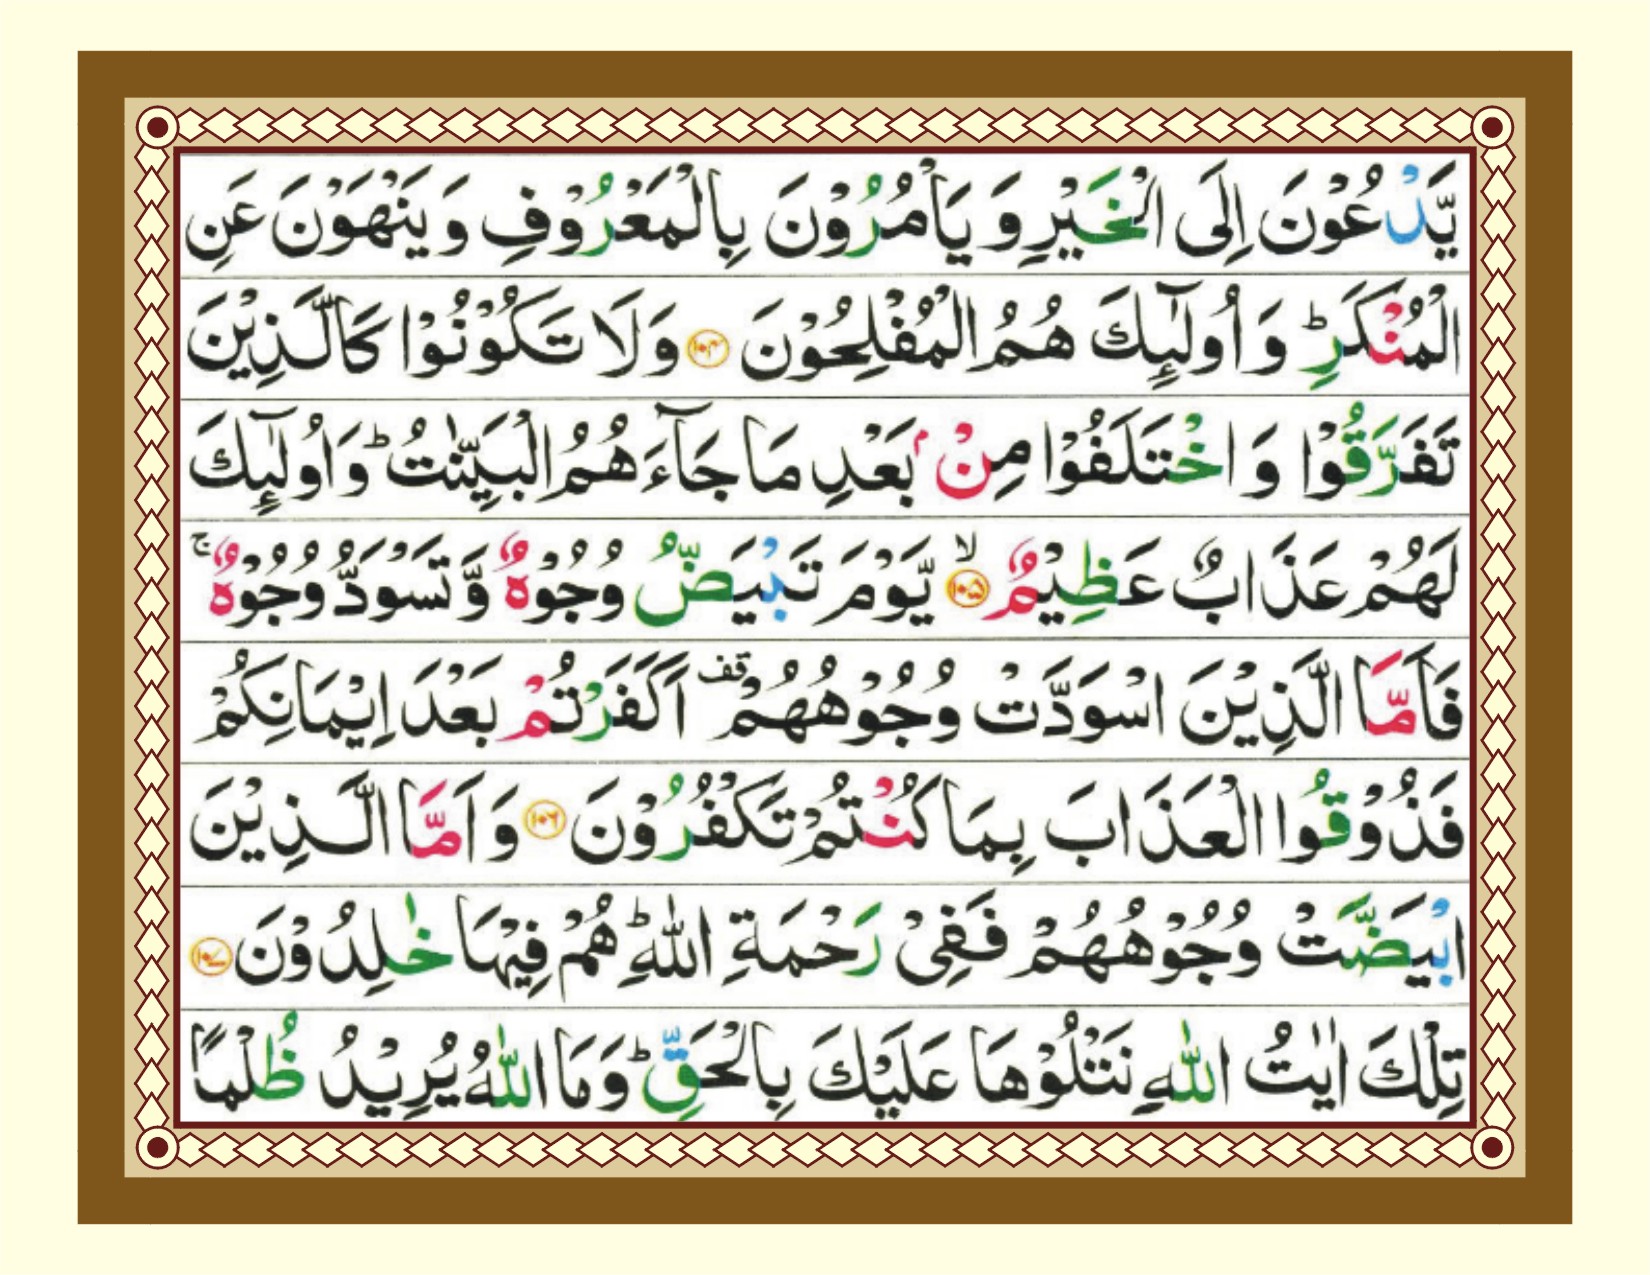 يَّدْعُوْنَ اِلَى الْخَيْرِ وَ يَاْمُرُوْنَ بِالْمَعْرُوْفِ وَ يَنْهَوْنَ عَنِ
الْمُنْكَرِ ؕ وَ اُولٰٓئِكَ هُمُ الْمُفْلِحُوْنَ ﴿۱۰۴﴾ وَ لَا تَكُوْنُوْا كَالَّذِيْنَ
تَفَرَّقُوْا وَ اخْتَلَفُوْا مِنْۢ بَعْدِ مَا جَآءَهُمُ الْبَيِّنٰتُ ؕ وَ اُولٰٓئِكَ
لَهُمْ عَذَابٌ عَظِيْمٌ ﴿۱۰۵﴾ۙ يَّوْمَ تَبْيَضُّ وُجُوْهٌ وَّ تَسْوَدُّ وُجُوْهٌ ۚ
فَاَمَّا الَّذِيْنَ اسْوَدَّتْ وُجُوْهُهُمْ قف اَكَفَرْتُمْ بَعْدَ اِيْمَانِكُمْ
فَذُوْقُوا الْعَذَابَ بِمَا كُنْتُمْ تَكْفُرُوْنَ ﴿۱۰۶﴾ وَ اَمَّا الَّذِيْنَ
ابْيَضَّتْ وُجُوْهُهُمْ فَفِيْ رَحْمَةِ اللّٰهِ ؕ هُمْ فِيْهَا خٰلِدُوْنَ ﴿۱۰۷﴾
تِلْكَ اٰيٰتُ اللّٰهِ نَتْلُوْهَا عَلَيْكَ بِالْحَقِّ ؕ وَ مَا اللّٰهُ يُرِيْدُ ظُلْمًا